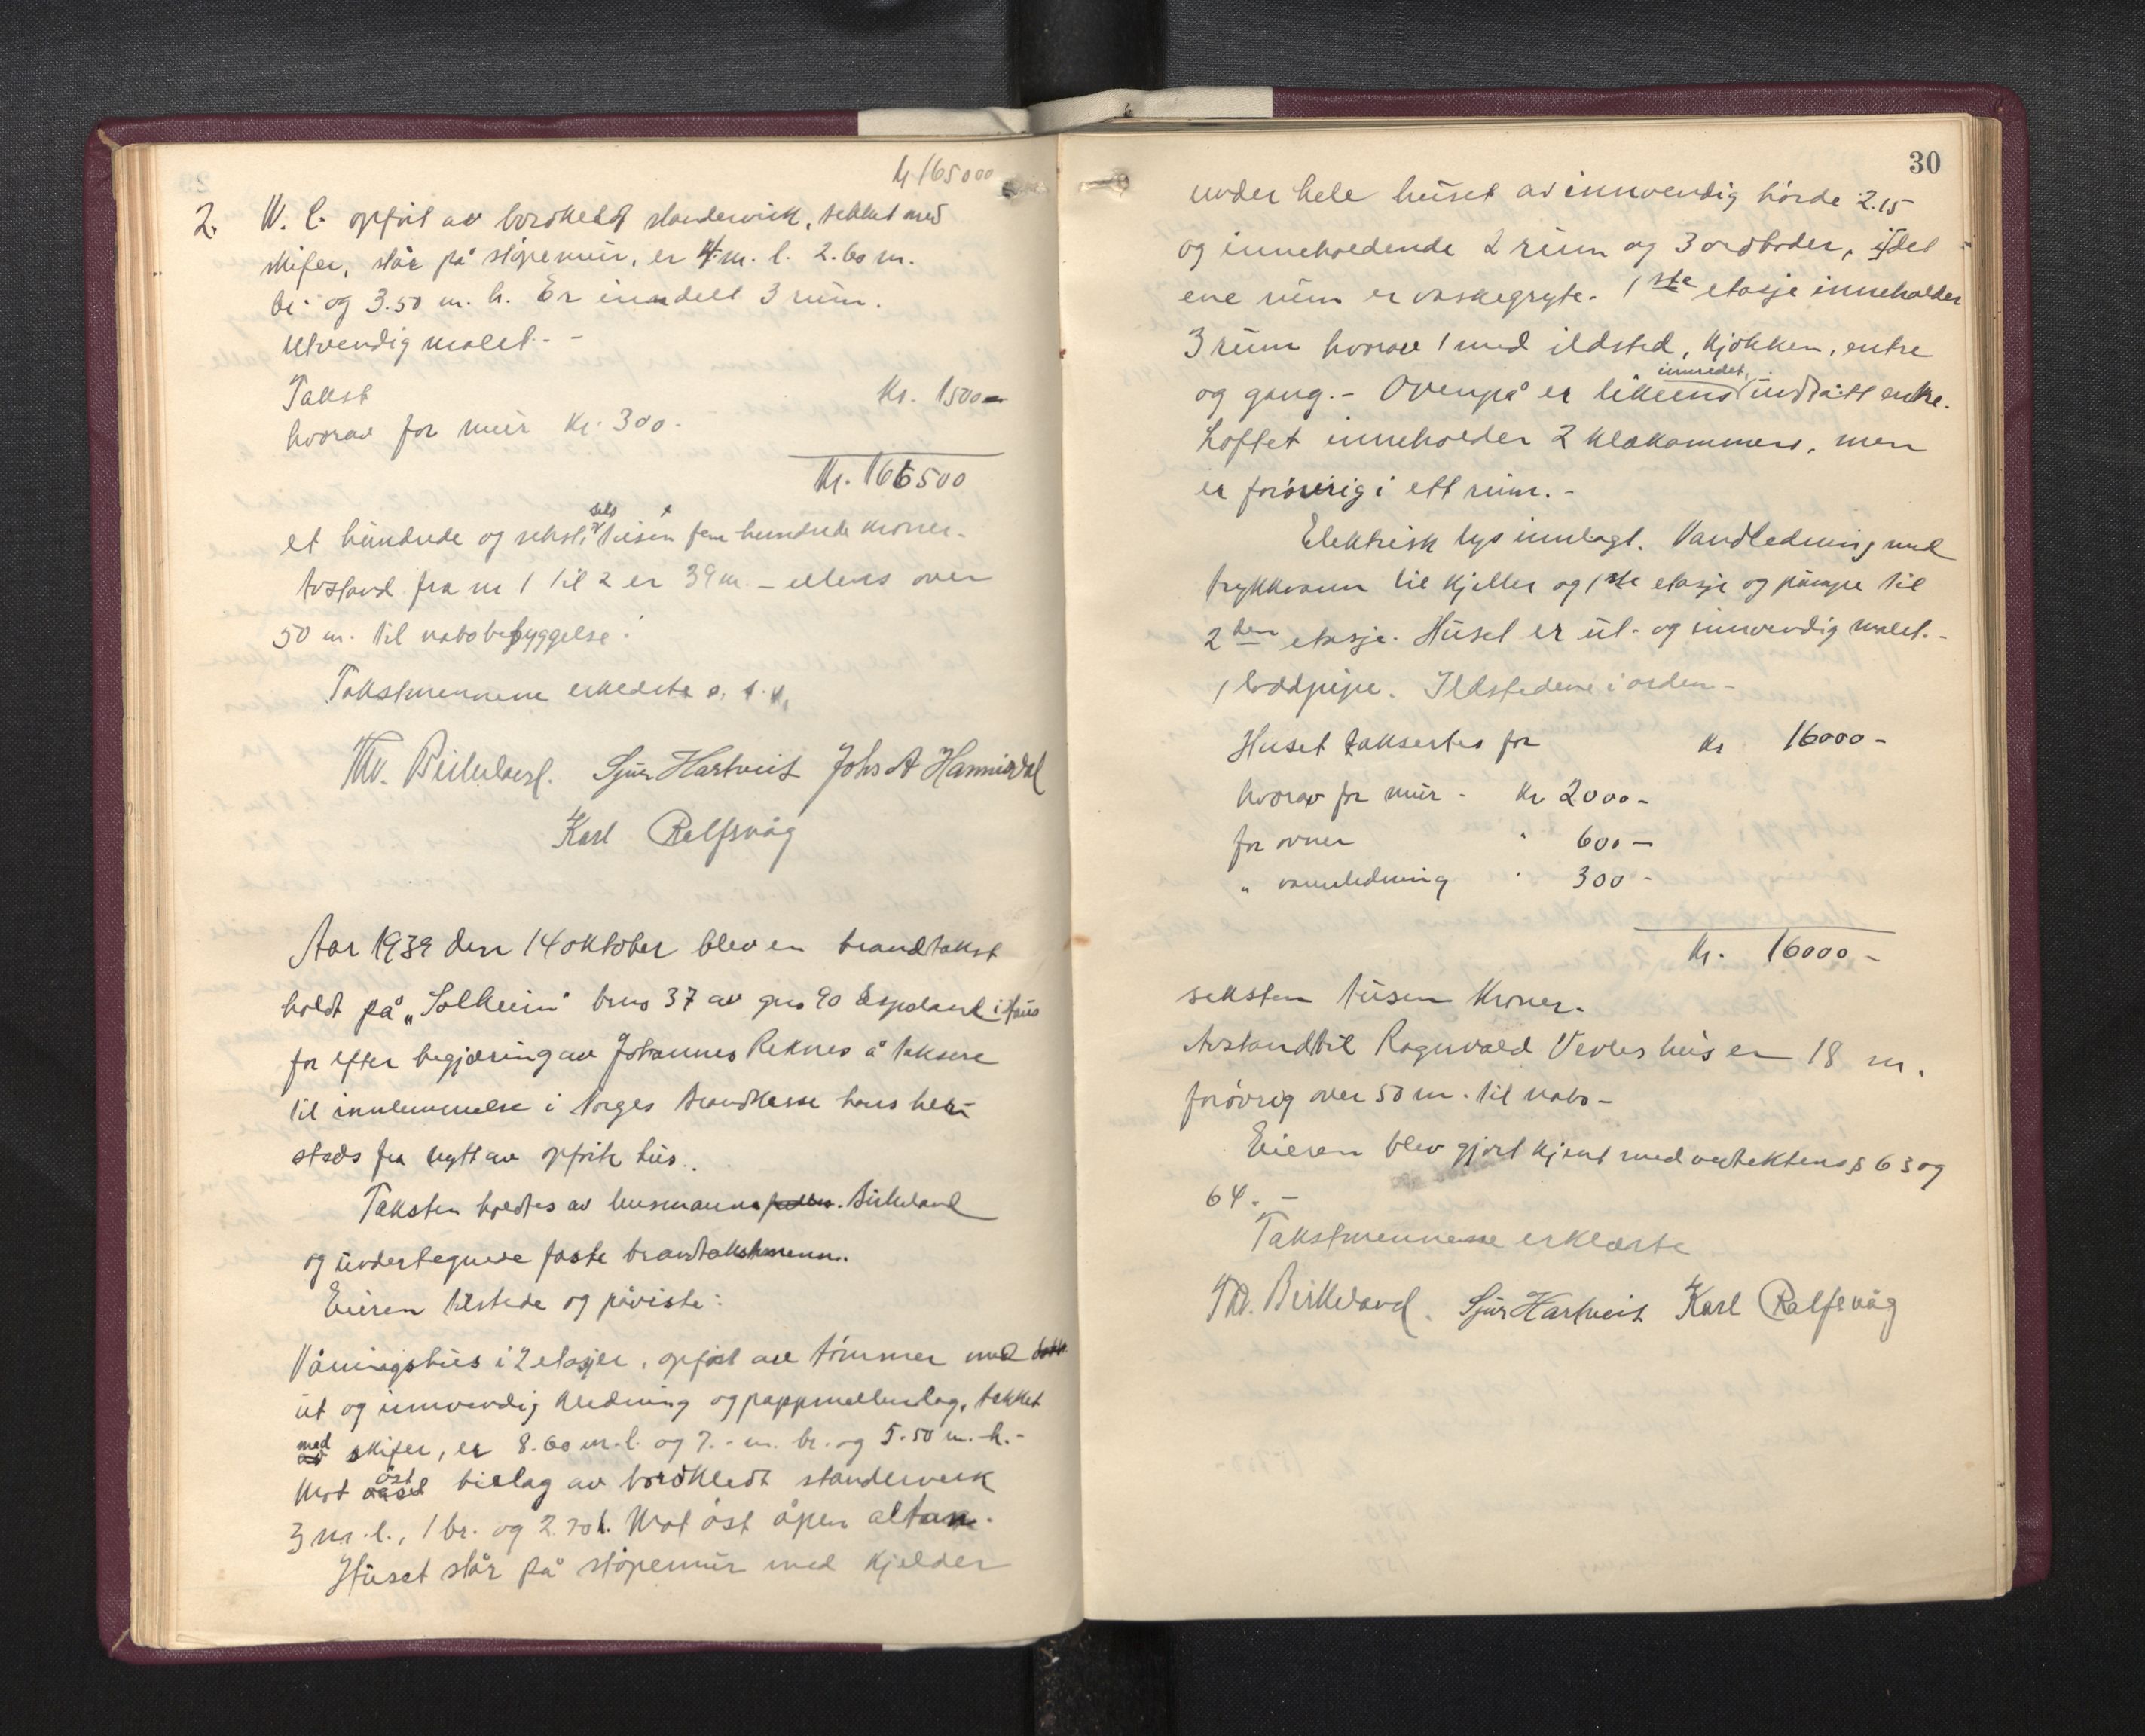 kr 165000
2. W. C. opført av bordkledt standerverk, tekket med
skifer, står på støpemur, er 4 m. l. 2.60 m.
br. og 3.50 m. h. Er inndelt 3 rum.
Utvendig malet. -
Takst kr. 1500 -
hvorav for mur kr. 300 -
kr. 166500
et hundrede og seksti seks tusen fem hundrede kroner -
Avstand fra nr 1 til 2 er 39 m. - ellers over
50 m. til nabobebyggelse.
Takstmennene erklerte o. s. v.
Th. Birkeland. Sjur Hartveit Johs A Hannisdal
Karl Rolfsvåg
Aar 1939 den 14 oktober blev en brandtakst
holdt på „Solheim" brno 37 av gno 90 Espeland i Haus
for efter begjæring av Johannes Reknes å taksere
til innlemmelse i Norges Brandkasse hans her-
steds fra nytt av opførte hus.
Taksten holdtes av lensmann Birkeland
og undertegnede faste brandtakstmenn.
Eieren tilstede og påviste:
Våningshus i 2 etasjer, opført av tømmer med
ut og innvendig kledning og pappmellemlag, tekket
med skifer, er 8.60 m. l. og 7. - m. br. og 5.50 m. h. -
Mot øst bislag av bordkledt standerverk
3 m. l., 1 br. og 2.70 h. Mot øst åpen altan.
Huset står på støpemur med kjelder
30
under hele huset av innvendig høide 2.15
og inneholdende 2 rum og 3 ordboder, i det
ene rum er vaskegryte. 1ste etasje inneholder
3 rum hvorav 1 med ildsted, kjøkken, entre
og gang. - Ovenpå er likeens innredet, undtatt entre.
Loftet inneholder 2 klækammers, men
er forøvrig i ett rum. -
Elektrisk lys innlagt. Vandledning med
trykkvann til kjeller og 1ste etasje og pumpe til
2den etasje. Huset er ut- og innvendig malet. -
1 loddpipe. Ildstedene i orden -
Huset taksertes for kr 16000 -
hvorav for mur - kr 2000 -
for ovner " 600 -
" vannledning " 300 -
kr. 16000 -
seksten tusen kroner.
Avstand til Ragnvald Vevles hus er 18 m.
forøvrig over 50 m. til nabo -
Eieren blev gjort kjent med vedtektens § 63 og
64. -
Takstmennene erklærte
Th. Birkeland. Sjur Hartveit Karl Rolfsvåg